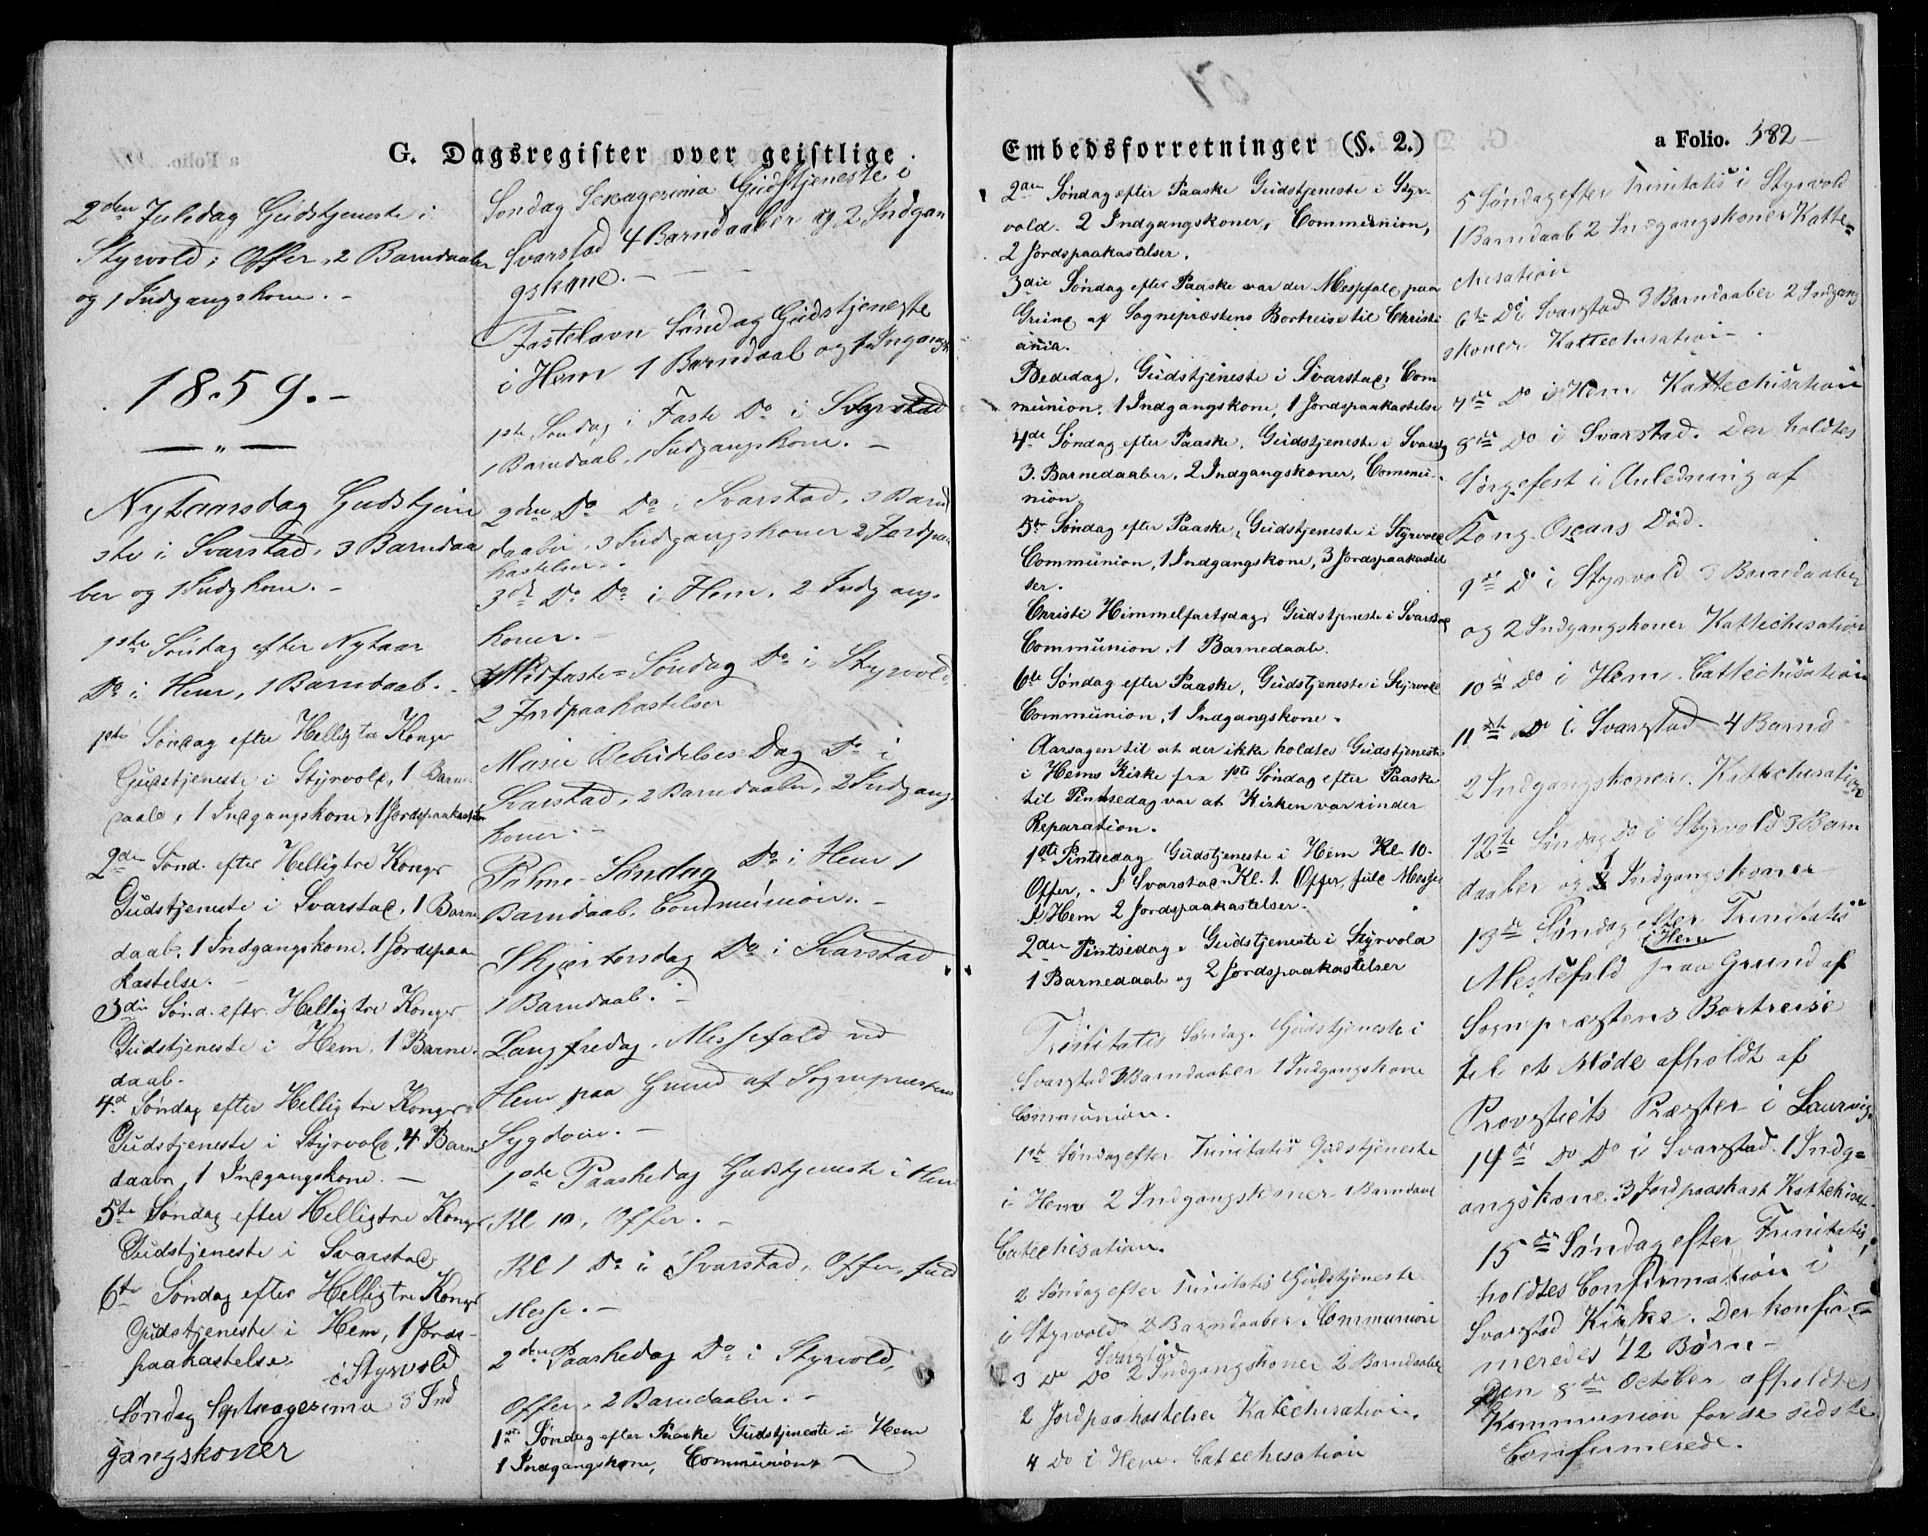 G. Dagsregister over geistlige
2den Juledag Gudstjeneste i
Styrvold, Offer, 2 Barndaaber
og 1 Indgangskone. -
1859. -
Nytaarsdag Gudstjene
ste i Svarstad, 3 Barndaa
ber og 1 Indgkone. -
1ste Søndag efter Nytaar
Do i Hem, 1 Barndaab. -
1ste Søndag efter Hellig tre Konger
Gudstjeneste i Styrvold, 1 Barne
daab, 1 Indgangskone, 1 Jordspaakastelse
2den Sønd. efter Hellig tre Konger
Gudstjeneste i Svarstad, 1 Barne
daab, 1 Indgangskone, 1 Jordspaa
kastelse. -
3die Sønd. efter Hellig tre Konger
Gudstjeneste i Hem, 1 Barne
daab.
4d Søndag efter Hellig tre Konger
Gudstjeneste i Styrvold, 4 Barne
daabe, 1 Indgangskone. -
5te Søndag efter Hellig tre Konger
Gudstjeneste i Svarstad
6te Søndag efter Hellig tre Konger
Gudstjeneste i Hem, 1 Jords-
paakastelse.
i Styrvold
Søndag Septuagesima 3 Ind
gangskoner
Søndag Sexagesima Gudstjeneste i
Svarstad 4 Barndaaber og 2 Indgan
gskone. -
Fastelavn Søndag Gudstjeneste
i Hem 1 Barndaab og 1 Ingangsk
1ste Søndag i Faste Do i Styrvold
1 Barndaab, 1 Indgangskone. -
2den Do Do i Svarstad, 3 Barn
daaber, 3 Indgangskoner 2 Jordpaa
kastelser.
3die Do Do i Hem, 2 Indgangs
koner. -
Midfaste-Søndag Do i Styrvold,
2 Jordpaakastelser
Marie Bebudelses Dag Do i
Svarstad, 2 Barndaaber, 2 Indgang
koner. -
Palme-Søndag Do i Hem 1
Barndaab, Communion. -
Skjærtorsdag Do i Svarstad
1 Barndaab. -
Langfredag, Messefald ved
Hem paa Grund af Sognepræstens
Sygdom. -
1ste Paaskedag Gudstjeneste i Hem
Kl 10, Offer. -
Kl 1 Do i Svarstad, Offer, fuld
Messe. -
2den Paaskedag Do i Styrvold,
Offer, 2 Barndaaber. -
1ste Søndag efter Paaske Gudstjeneste i Hem
1 Indgangskone, Communion.
Embedsforretninger (§. 2.)
a Folio. 582
2den Søndag efter Paaske Gudstjeneste i Styr-
vold. 2 Indgangskoner, Communion,
2 Jordspaakastelser.
3die Søndag efter Paaske var der Messefald paa
Grund af Sognepræstens Bortreise til Christi
ania.
Bededag, Gudstjeneste i Svarstad, Com
munion. 1 Indgangskone, 1 Jordspaakastelse
4de Søndag efter Paaske, Gudstjeneste i Svarstad
3. Barnedaaber, 2 Indgangskoner, Commu-
nion.
5te Søndag efter Paaske, Gudstjeneste i Styrvold
Communion, 1 Indgangskone, 3 Jordspaakastel
ser.
Christi Himmelfartsdag, Gudstjeneste i Svarstad
Communion, 1 Barnedaab.
6te Søndag efter Paaske, Gudstjeneste i Styrvold
Communion, 1 Indgangskone.
Aarsagen til at der ikke holdtes Gudstjeneste
i Hems Kirke fra 1ste Søndag efter Paaske
til Pintsedag var at Kirken var under
Reparation.
1ste Pintsedag Gudstjeneste i Hem Kl. 10.
Offer, - I Svarstad Kl. 1. Offer, fuld Messe
I Hem 2 Jordspaakastelser.
2den Pintsedag Gudstjeneste i Styrvold
1 Barnedaab og 2 Jordspaakastelser
Trinitatis Søndag. Gudstjeneste i
Svarstad 3 Barndaaber 1 Indgangskone
Communion.
1ste Søndag efter Trinitatis Gudstjeneste
i Hem 2 Indgangskoner 1 Barndaab
Catechisation.
2 Søndag efter Trinitatis Gudstjeneste
i Styrvold 2 Barndaaber. Communion
Svarstad
3 Do Do 2 Indgangskoner 2 Barndaaber
2 Jordpaakastelser Katechisation.
4 Do i Hem. Catechisation
5 Søndag efter Trinitatis i Styrvold
1 Barndaab 2 Indgangskoner Katte-
chisation
6te Do i Svarstad 3 Barndaaber 2 Indgang
skoner Kattechisation -
7de Do i Hem Kattechisation
8de Do i Svarstad. Der holdtes
Sørgefest i Anledning af
Kong Oscars Død.
9de Do i Styrvold 3 Barndaaber
og 2 Indgangskoner Kattechisation
10de Do i Hem. Cattechisation
11te Do i Svarstad 4 Barnd
2 Indgangskoner. Kattechisation
12te Søndag Do i Styrvold 3 Barn
daaber og 1 Indgangskoner
13de Søndag efter Trinitatis
i Hem
Messefald paa Grund af
Sognepræstens Bortreise
til et Møde afholdt af
Provstiets Præster i Laurvig.
14de Do Do i Svarstad. 1 Indg-
angskone. 3 Jordpaakast Kattechisat
15de Søndag efter Trinitatis,
holdtes Confirmation i
Svarstad Kirke. Der konfir-
meredes 42 Børn -
Den 8de October afholdtes
Kommunion for de sidste
Confirmerede.